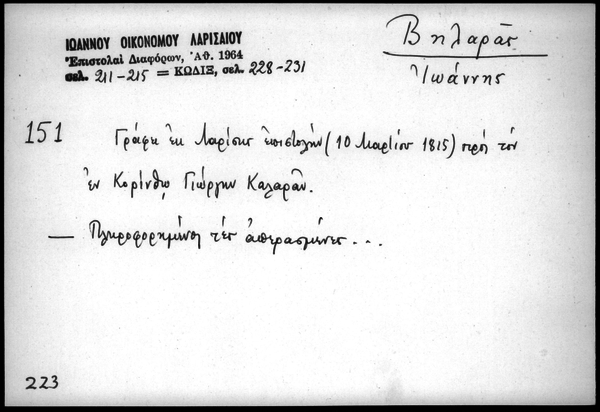 ΙΩΑΝΝΟΥ ΟΙΚΟΝΟΜΟΥ ΛΑΡΙΣΑΙΟΥ
Ἐπιστολαὶ Διαφόρων, Ἀθ. 1964
σελ. 211-215 = ΚΩΔΙΞ, σελ. 228-231
Βηλαρᾶς
Ἰωάννης
151 Γράφει ἐκ Λαρίσης ἐπιστολὴν (10 Μαρτίου 1815) πρὸς τὸν
ἐν Κορίνθῳ Γιώργην Καλαρᾶν.
— Πληροφορημένος τὲς ἀπερασμένες...
223